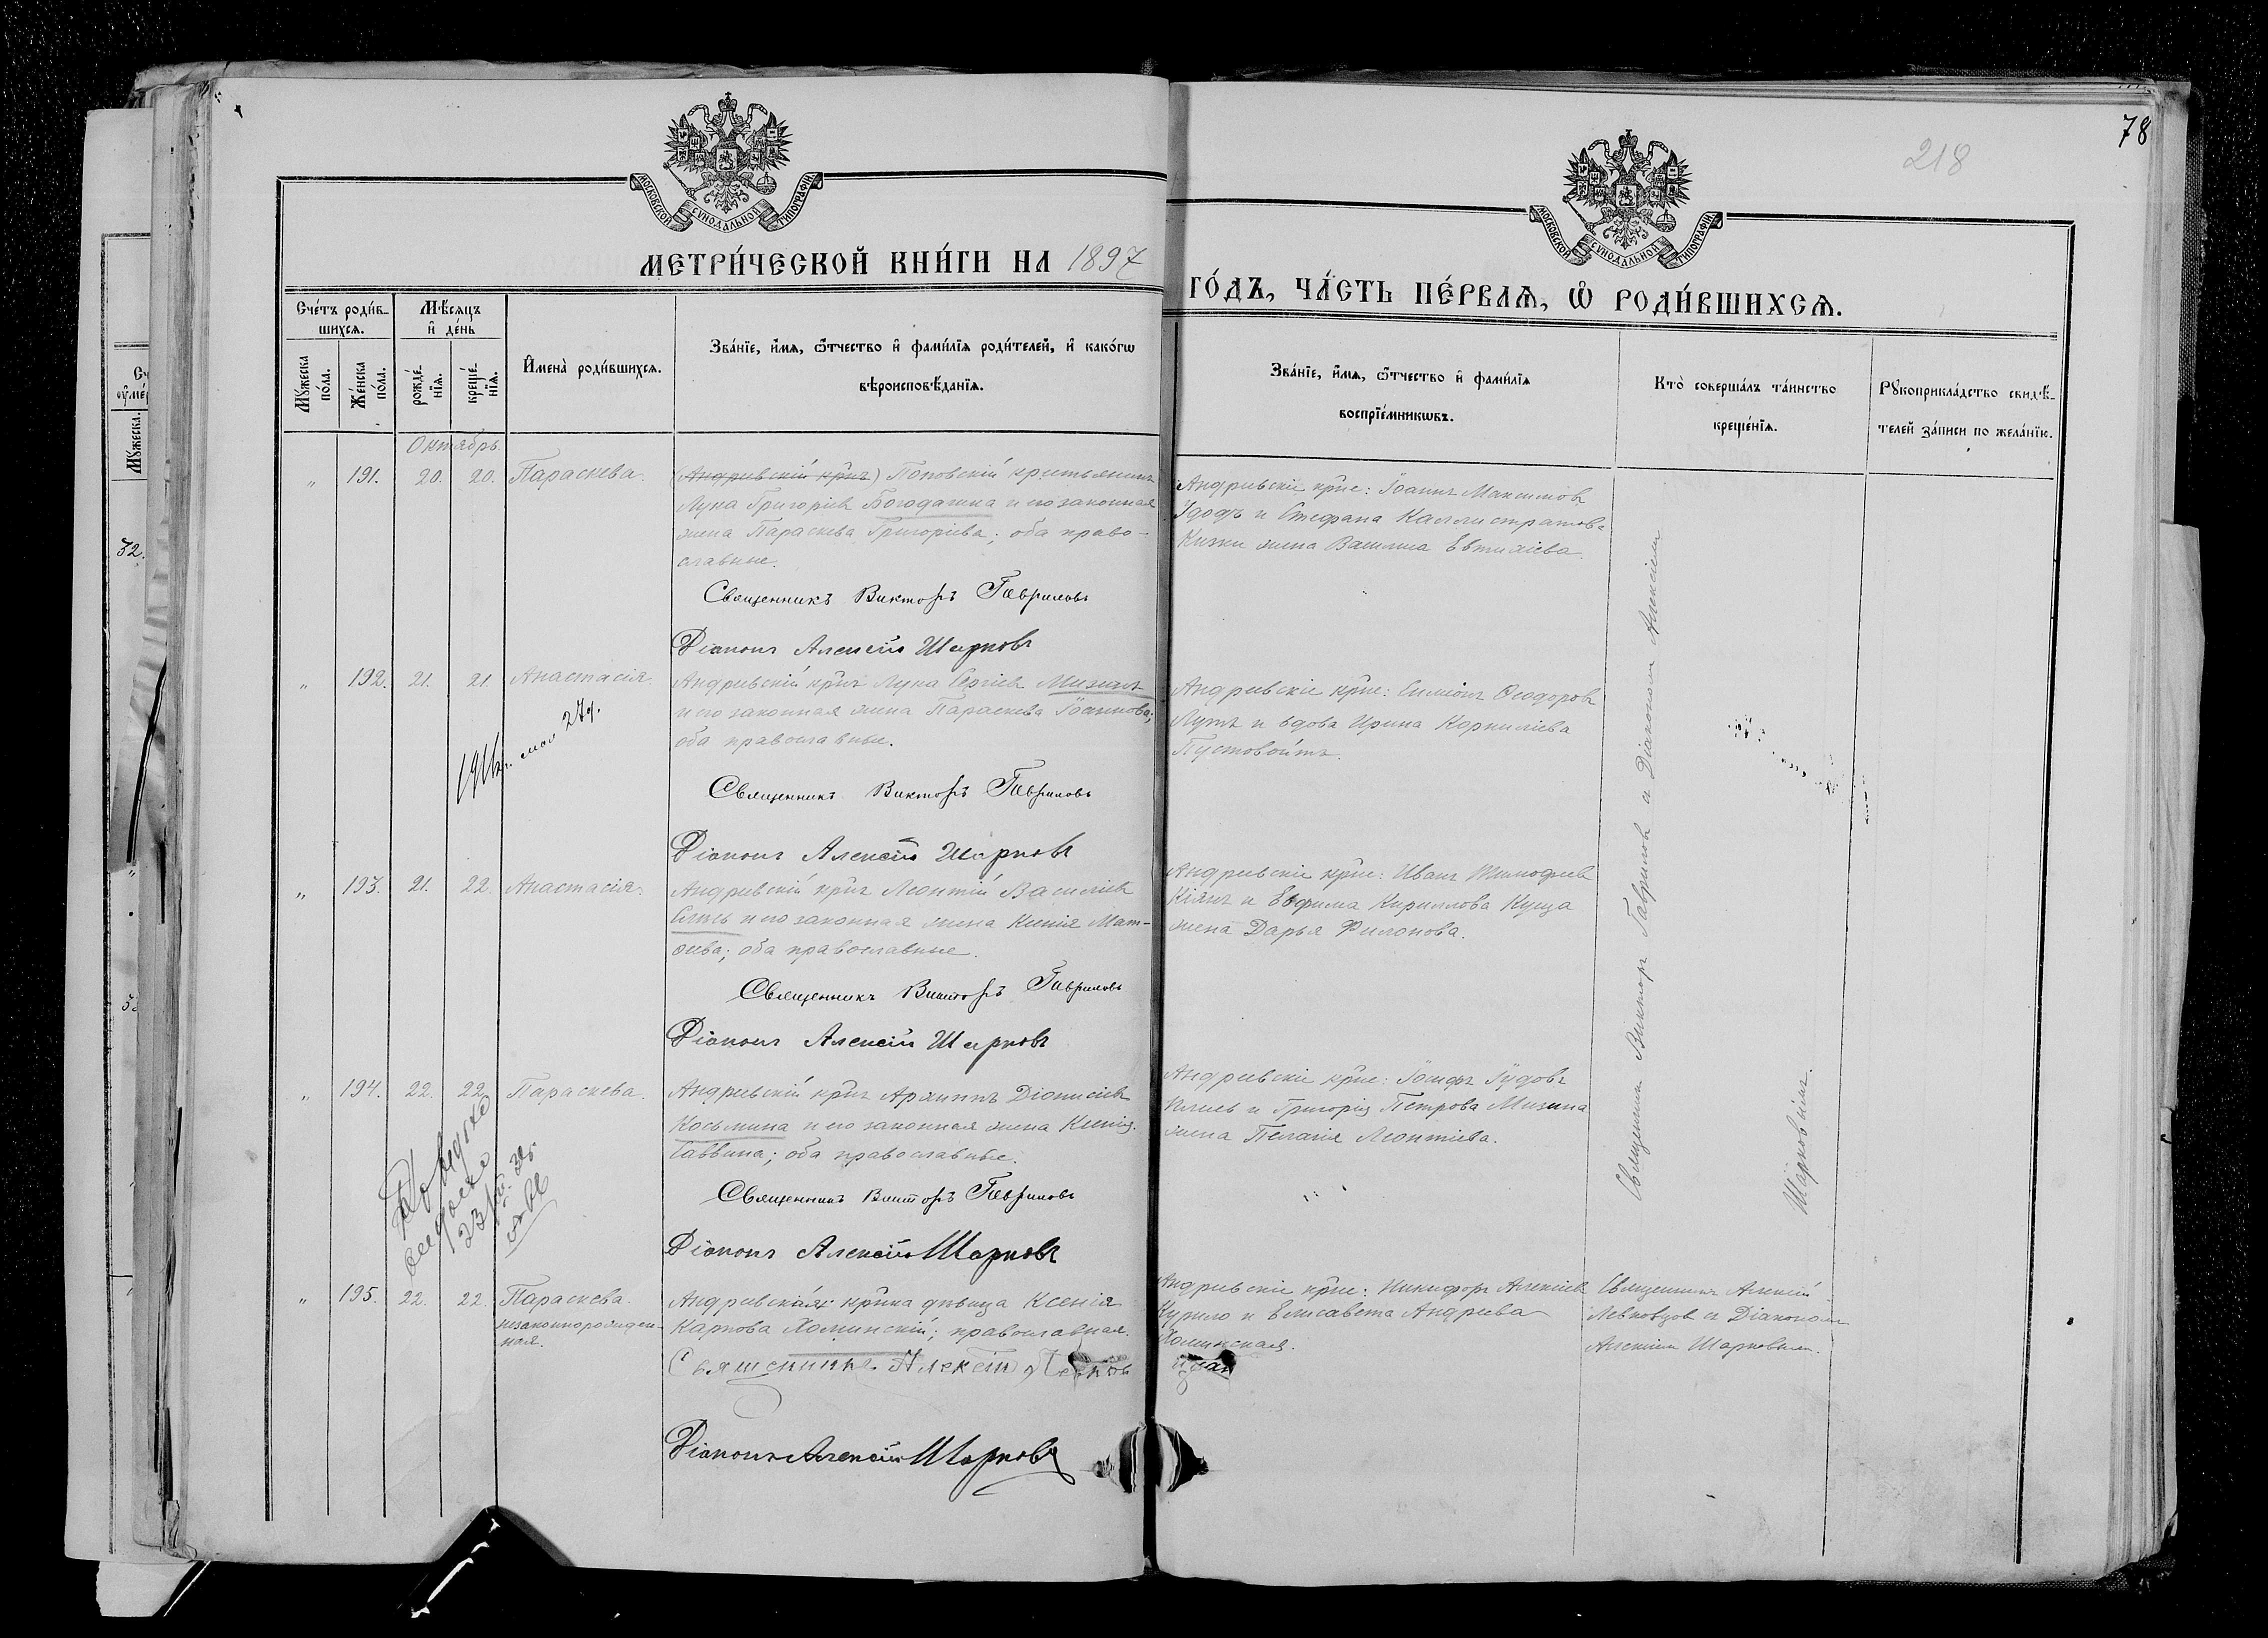 78
218
МОСКОВСКОЙ СУНОДАЛЬНОЙ ТИПОГРАФІИ
МОСКОВСКОЙ СУНОДАЛЬНОЙ ТИПОГРАФІИ
МЕТРИ́ЧЕСКОЙ КНИ́ГИ НА 1897
ГО́ДЪ, ЧА́СТЬ ПЕ́РВАѦ, Ѽ РОДИ́ВШИХСѦ.
Сче́тъ роди́в-
шихсѧ.
Мѣ́сѧцъ
и҆ де́нь
Мꙋ́жеска
по́ла.
Же́нска
по́ла.
рожде́-
нїѧ.
креще́-
нїѧ.
И҆мена̀ роди́вшихсѧ.
Зва́нїе, и҆́мѧ, ѻ҆́тчество и҆ фами́лїѧ роди́телей, и҆ како́гѡ
вѣроисповѣ́данїѧ.
Зва́нїе, и҆́мѧ, ѻ҆́тчество и҆ фами́лїѧ
воспрїе́мникѡвъ.
Кто̀ соверша́лъ та́инство
креще́нїѧ.
Рꙋкоприкла́дство свидѣ́-
телей за́писи по жела́нїю.
Октябрь
„ 191. 20. 20. Параскева.
(Андреевскій кр̃нъ) Поповскій крестьянинъ
Лука Григоріевъ Богодагина и его законная
жена Параскева Григоріева; оба право-
славные.
Священникъ Викторъ Гавриловъ
Діаконъ Алексій Шарковъ
Андреевскіе кр̃не: Іоаннъ Максимовъ
Удодъ и Стефана Каллистратова
Кизки жена Василиса Евтихіева.
„ 192. 21. 21 Анастасія.
1916 г. мая 27 д.
Андреевскій кр̃нъ Лука Сергіевъ Мизинъ
и его законная жена Параскева Іоаннова;
оба православные.
Священникъ Викторъ Гавриловъ
Діаконъ Алексій Шарковъ
Андреевскіе кр̃не: Симеонъ Ѳеодоровъ
и вдова Ирина Корниліева
Пустовойтъ.
„ 193. 21. 22. Анастасія.
Андреевскій кр̃нъ Леонтій Василіевъ
и его законная жена Ксенія Мат-
ѳеева; оба православные.
Священникъ Викторъ Гавриловъ
Діаконъ Алексій Шарковъ
Андреевскіе кр̃не: Иванъ Тимофеевъ
Кіянъ и Евфима Кириллова Куща
жена Дарья Филонова.
„ 194. 22. 22. Параскева.
Андреевскій кр̃нъ Архиппъ Діонисіевъ
Косьмина и его законная жена Ксенія
Саввина; оба православные.
Священникъ Викторъ Гавриловъ
Діаконъ Алексій Шарковъ
Андреевскіе кр̃не: Іосифъ
и Григорія Петрова Мизина
жена Пелагія Леонтіева.
Священникъ Викторъ Гавриловъ и Діаконом Алексіем
Шарковымъ.
„ 195. 22. 22. Параскева.
незаконнорожден-
ная.
Андреевская кр̃нка дѣвица Ксенія
Карпова Хоминскій; православная.
Священникъ Алексій Левковъ
Діаконъ Алексій Шарковъ
Андреевскіе кр̃не: Никифоръ Алексіевъ
Курило и Елисавета Андреева
Хоминская.
Священникъ Алексій
и Діаконом
Алексіем Шарковым.
32.